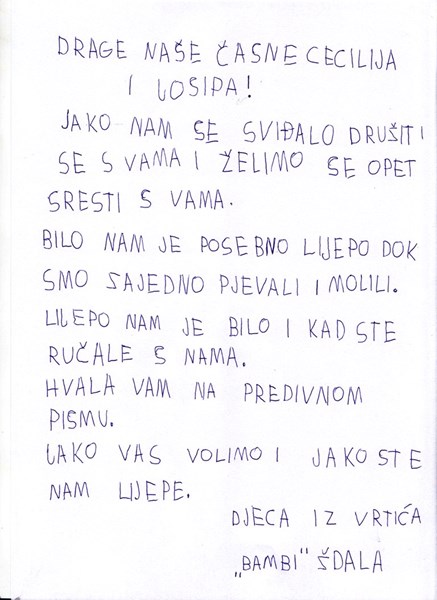 DRAGE NAŠE ČASNE CECILIJA
I JOSIPA!
JAKO NAM SE SVIĐALO DRUŠITI
SE S VAMA I ŽELIMO SE OPET
SRESTI S VAMA.
BILO NAM JE POSEBNO LIJEPO DOK
SMO ZAJEDNO PJEVALI I MOLILI.
LIJEPO NAM JE BILO I KAD STE
RUČALE S NAMA.
HVALA VAM NA PREDIVNOM
PISMU.
JAKO VAS VOLIMO I JAKO STE
NAM LIJEPE.
DJECA IZ VRTIĆA
„BAMBI" ŽDALA